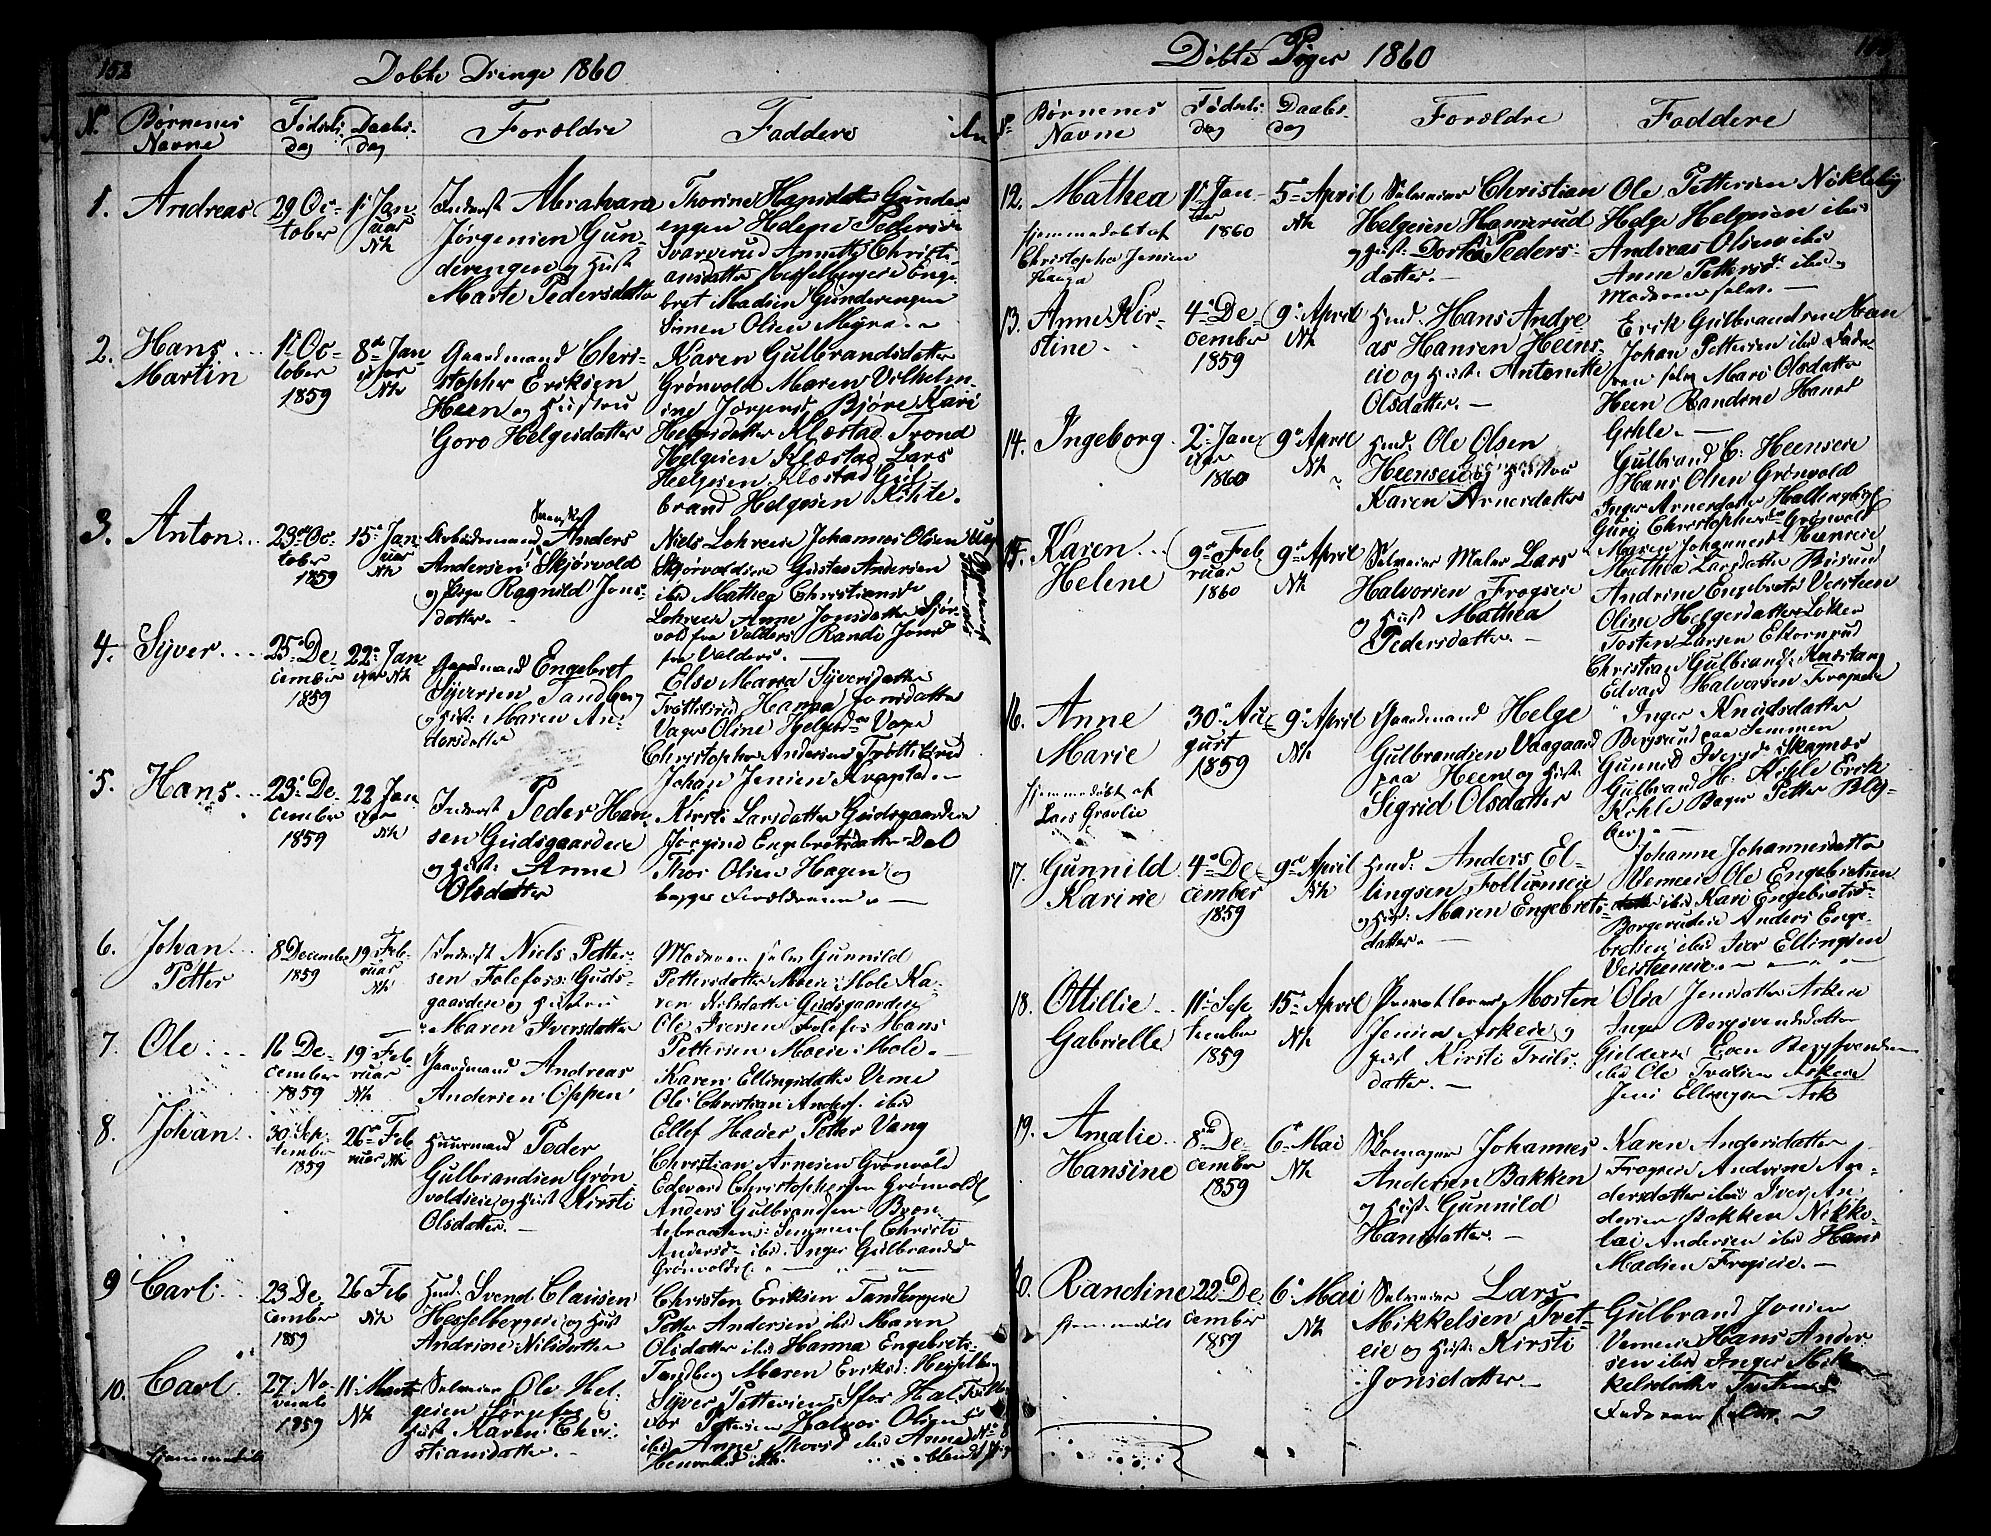 152
Døbte Drenge 1860
N.
Børnenes
Navne
Fødsels
dag
Daabs-
dag
Forældre
Faddere
An
1.
Andreas
29 Oc-
tober
1 Jan
uar
Nk
Inderst Abraham
Jørgensen Gun-
derengen og Hust
Marte Pedersdatter
Thorine Hansdatt Gunder
engen Helene Pedersd
Svarverud Annette Christi-
ansdatter Hesselbergeie Enge-
bret Madsen Gunderengen
Simen Olsen Myra. -
2.
Hans
Martin
1 Oc-
tober
1859
8 Jan-
uar
Nk
Gaardmand Chri-
stopher Eriksen
Heen og Hustru
Goro Helgesdatter
Karen Gulbrandsdatter
Grønvold Maren Vilhelm-
ine Jørgensd Bjøre Kari
Helgesdatter Klæstad Trond
Helgesen Klæstad Lars
Helgesen Klæstad Gul-
brand Helgesen Kihle.
3.
Anton
23 Oc-
tober
1859
15 Jan
uar
Nk
Svensk
Arbeidsmand Anders
Andersen Skjørvold
og Pige Ragnild Jons-
datter.
Niels Lohreie Johannes Olsen
Skjørvoldeie Gustav Andersen
ibid Mathea Christiansd
Lohreie Anne Jonsdatter Skjør-
vold fra Valders Randi Jonsd
fra Valders. -
4.
Syver
25 De-
cember
1859
22 Jan
uar Nk
Gaardmand Engebret
Syversen Tandberg
og Hust: Maren An-
dersdatter
Else Maria Syversdatter
Trøttelsrud Hanna Jonsdatter
Vager Oline Helgesd Vager
Christopher Andersen Trøttelsrud
Johan Jensen Kragstad. -
5.
Hans
23 De-
cember
1859
22 Jan
uar
Nk
Inderst Peder Han-
sen Gudsgaardeie
og Hust: Anne
Olsdatter
Kirsti Larsdatter Gudsgaardeie
Jørgine Engebretsdatter Dal
Thor Olsen Hagen og
begge Forældrene. -
6.
Johan
Petter
8 December
1859
19 Feb-
ruar
Nk
Inderst Niels Petter-
sen Folefoss: Guds-
gaardeie og Hustru
Maren Iversdatter
Moderen selv Gunnild
Pettersdatter Moeie: Hole Ka-
ren Nilsdatter Gudsgaardeie
Ole Iversen Folefos Hans
Pettersen Moeie: Hole. -
7.
Ole
16 De-
cember
1859
19 Feb
ruar
Nk
Gaardmand Andreas
Andersen Oppen
Karen Ellingsdatter Veme
Ole Christian Anders. ibid
8.
Johan
30 Sep-
tember
1859
26 Feb
ruar Nk
Huusmand Peder
Gulbrandsen Grøn-
voldseie og Hust Kirsti
Olsdatter. -
Ellef Hoier Petter Vang
Christian Arnesen Grønvold
Edevard Christophersen Grønvold
Anders Gulbrandsen Bron
tebraaten: Semmen Christi
Andersd ibid. Inger Gulbrandsd
Grønvolds. -
9
Carl
23 De
cember
1859
26 Feb
Nk
Husd. Svend Clausen
Hesselbergeie og Hust
Andrine Nilsdatter
Christen Eriksen Tandbergeie
Petter Andersen ibid Maren
Olsdatter ibid Hanna Engebrets-
Tandberg Maren Eriksd: Hesselberg
10.
Carl
Hjemmedøbt
27 No
vemb
1859
11 Marts
Nk
Selveier Ole Hel-
gesen Sørgefos
Hust Karen Chri-
stiansdatter. -
Syver Pettersen
Pettersen Halvor Olsen
ibid Anne Thorsd ibid Anne
Døbte Piger 1860
N.
Børnenes
Navne
Fødsels
dag
Daabs-
dag
Forældre
Faddere
12.
Mathea
hjemmedøbt af
Christopher Jensen
Hauga
11 Jan-
uar
1860
5 April
Nk
Selveier Christian
Helgesen Hamerud
og Hust: Dorthea Peders-
datter. -
Ole Pettersen Nikleby
Helge Helgesen ibid
Andreas Olsen ibid
Anne Pettersd ibid og
Moderen selv. -
13.
Anne Kir-
stine
4 De-
cember
1859
9 April
Nk
Husd. Hans Andre
as Hansen Heens-
eie og Hust: Antonette
Olsdatter. -
Erik Gulbrandsen Heen
Johan Pettersen ibid Fade-
ren selv Mari Olsdatter
Heen Randine Hansd
Gihle. -
14.
Ingeborg
2 Jan
uar
1860
9 April
Nk
Husd: Ole Olsen
Heenseie og Hustru
Karen Arnesdatter
Gulbrand C. Heenseie
Hans Olsen Grønvold
Inger Arnesdatter Hallingby
Guro Christophersd Grønvold
Maren Johannesd Heenseie
15.
Karen
Helene
9 Feb
ruar
1860
9 April
Nk
Selveier Maler Lars
Halvorsen Frogseie
og Hust Mathea
Pedersdatter. -
Mathea Larsdatter Busund
Andrine Engebretsd Vesteren
Oline Helgesdatter Løken
Torsten Larsen Ekornrud
Christian Gulbrandsen Knestang
Edvard Halvorsen Frogseie
16.
Anne
Marie
hjemmedøbt af
Lars Gravlie
30 Au-
gust
1859
9 April
Nk
Gaardmand Helge
Gulbrandsen Vaagaard
paa Heen og Hust:
Sigrid Olsdatter
Inger Knudsdatter
Bergsund paa Semmen
Gunnild Iversd Skagnæs
Gulbrand H. Kihle Erik
Kihle Bager Petter Bly-
berg. -
17.
Gunnild
Karine
4 De-
cember
1859
9 April
Nk
Husd: Anders El-
lingsen Follumseie
og Hust: Maren Engebrets-
datter. -
Johanne Johannesdatter
Vemeeie Ole Engebretsen
ibid Kari Engebretsd-
Borgerudeie Anders Enge-
bretsen ibid Iver Ellingsen
Veisteeneie. -
18.
Ottillie
Gabrielle
11 Sep
tember
1859
15 April
Nk
Morten
Jensen Askeie og
Hust Kirsti Truls-
datter. -
Olia Jensdatter Askeie
Inger Bergsvendsdatter
Gielderen Even Bergsvendsen
ibid Ole Trulsen Askeie
Jens Ellingsen Ask
19.
Amalie
Hansine
8 De-
cember
1859
6 Mai
Nk
Skomager Johannes
Andersen Bakken
og Hust: Gunnild
Hansdatter. -
Karen Andersdatter
Frogseie Andrine An-
dersdatter ibid Iver An-
dersen Bakken Nikko-
lai Andersen ibid Hans
Madsen Frogseie. -
20.
Randine
Hjemmedøbt
22 De
cember
1859
6 Mai
Nk
Selveier Lars
Mikkelsen Tvet-
eie og Hust: Kirsti
Jonsdatter. -
Gulbrand Jonsen
Vemeeie Hans Ander-
sen ibid Inger Mik-
kelsdatter Tveten
Faderen selv. -